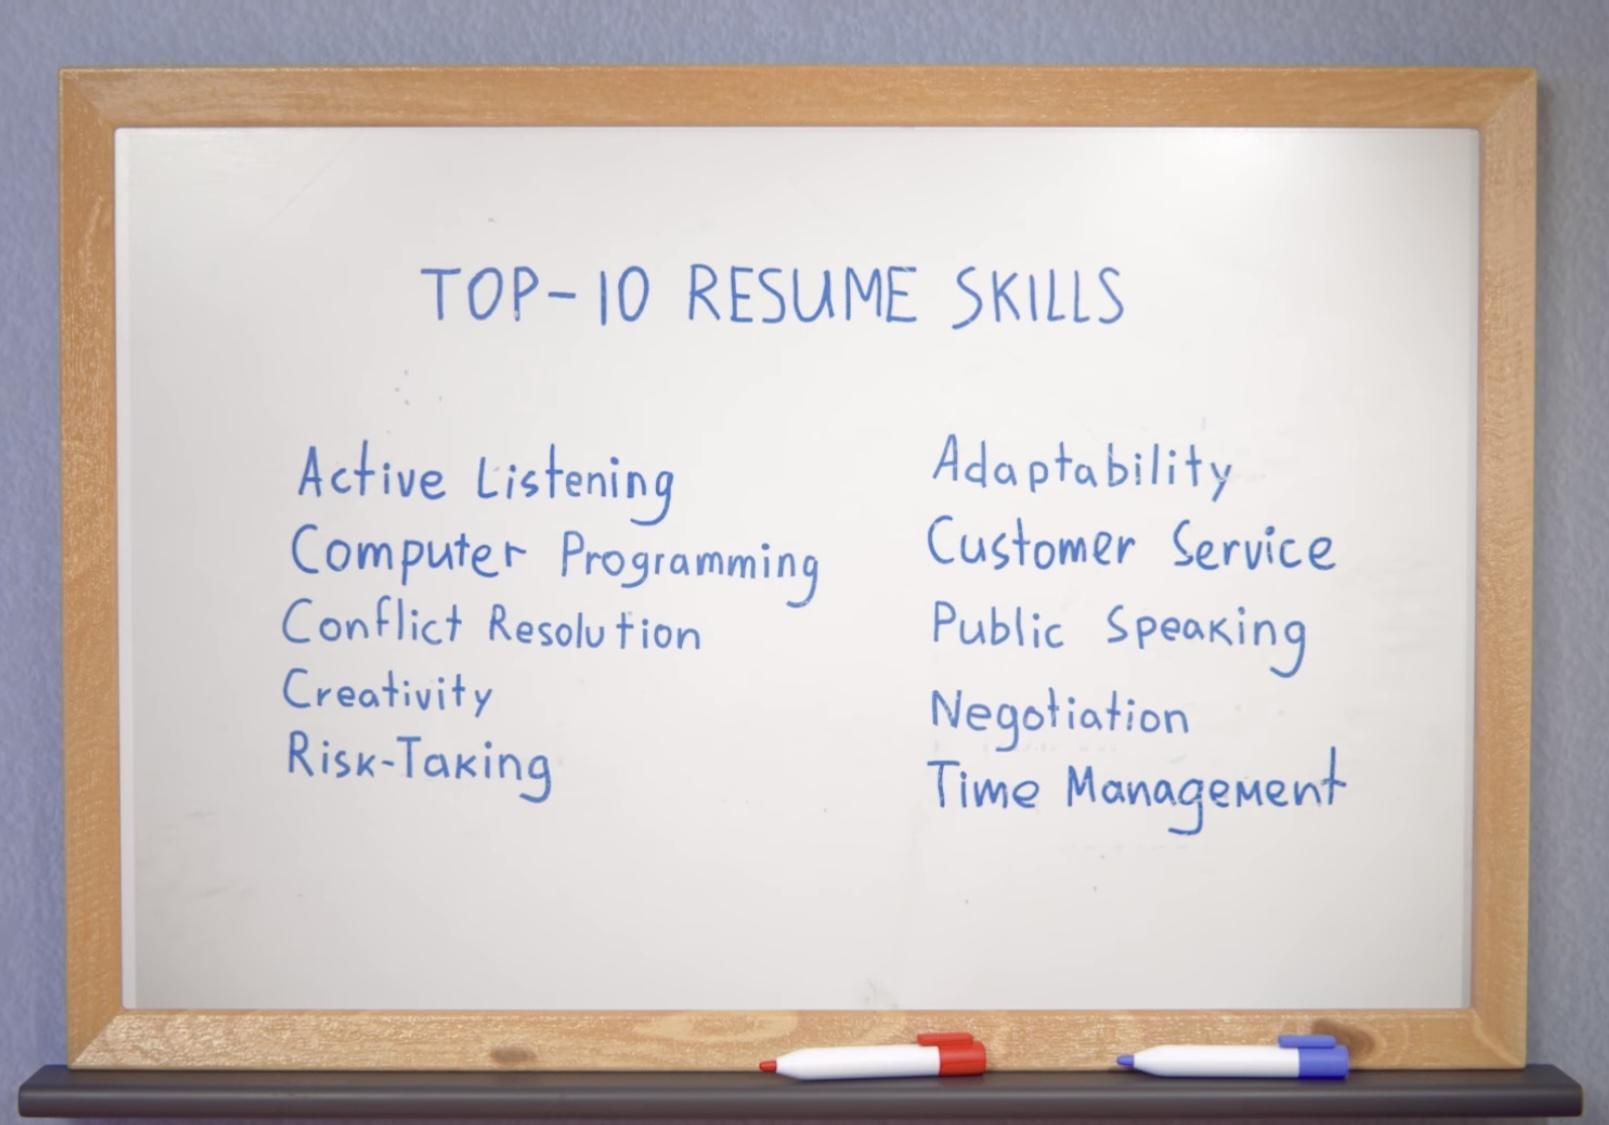 TOP-10 RESUME SKILLS
Active Listening
Computer Programming
Conflict Resolution
Creativity
Risk-Taking
Adaptability
Customer Service
Public Speaking
Negotiation
Time Management